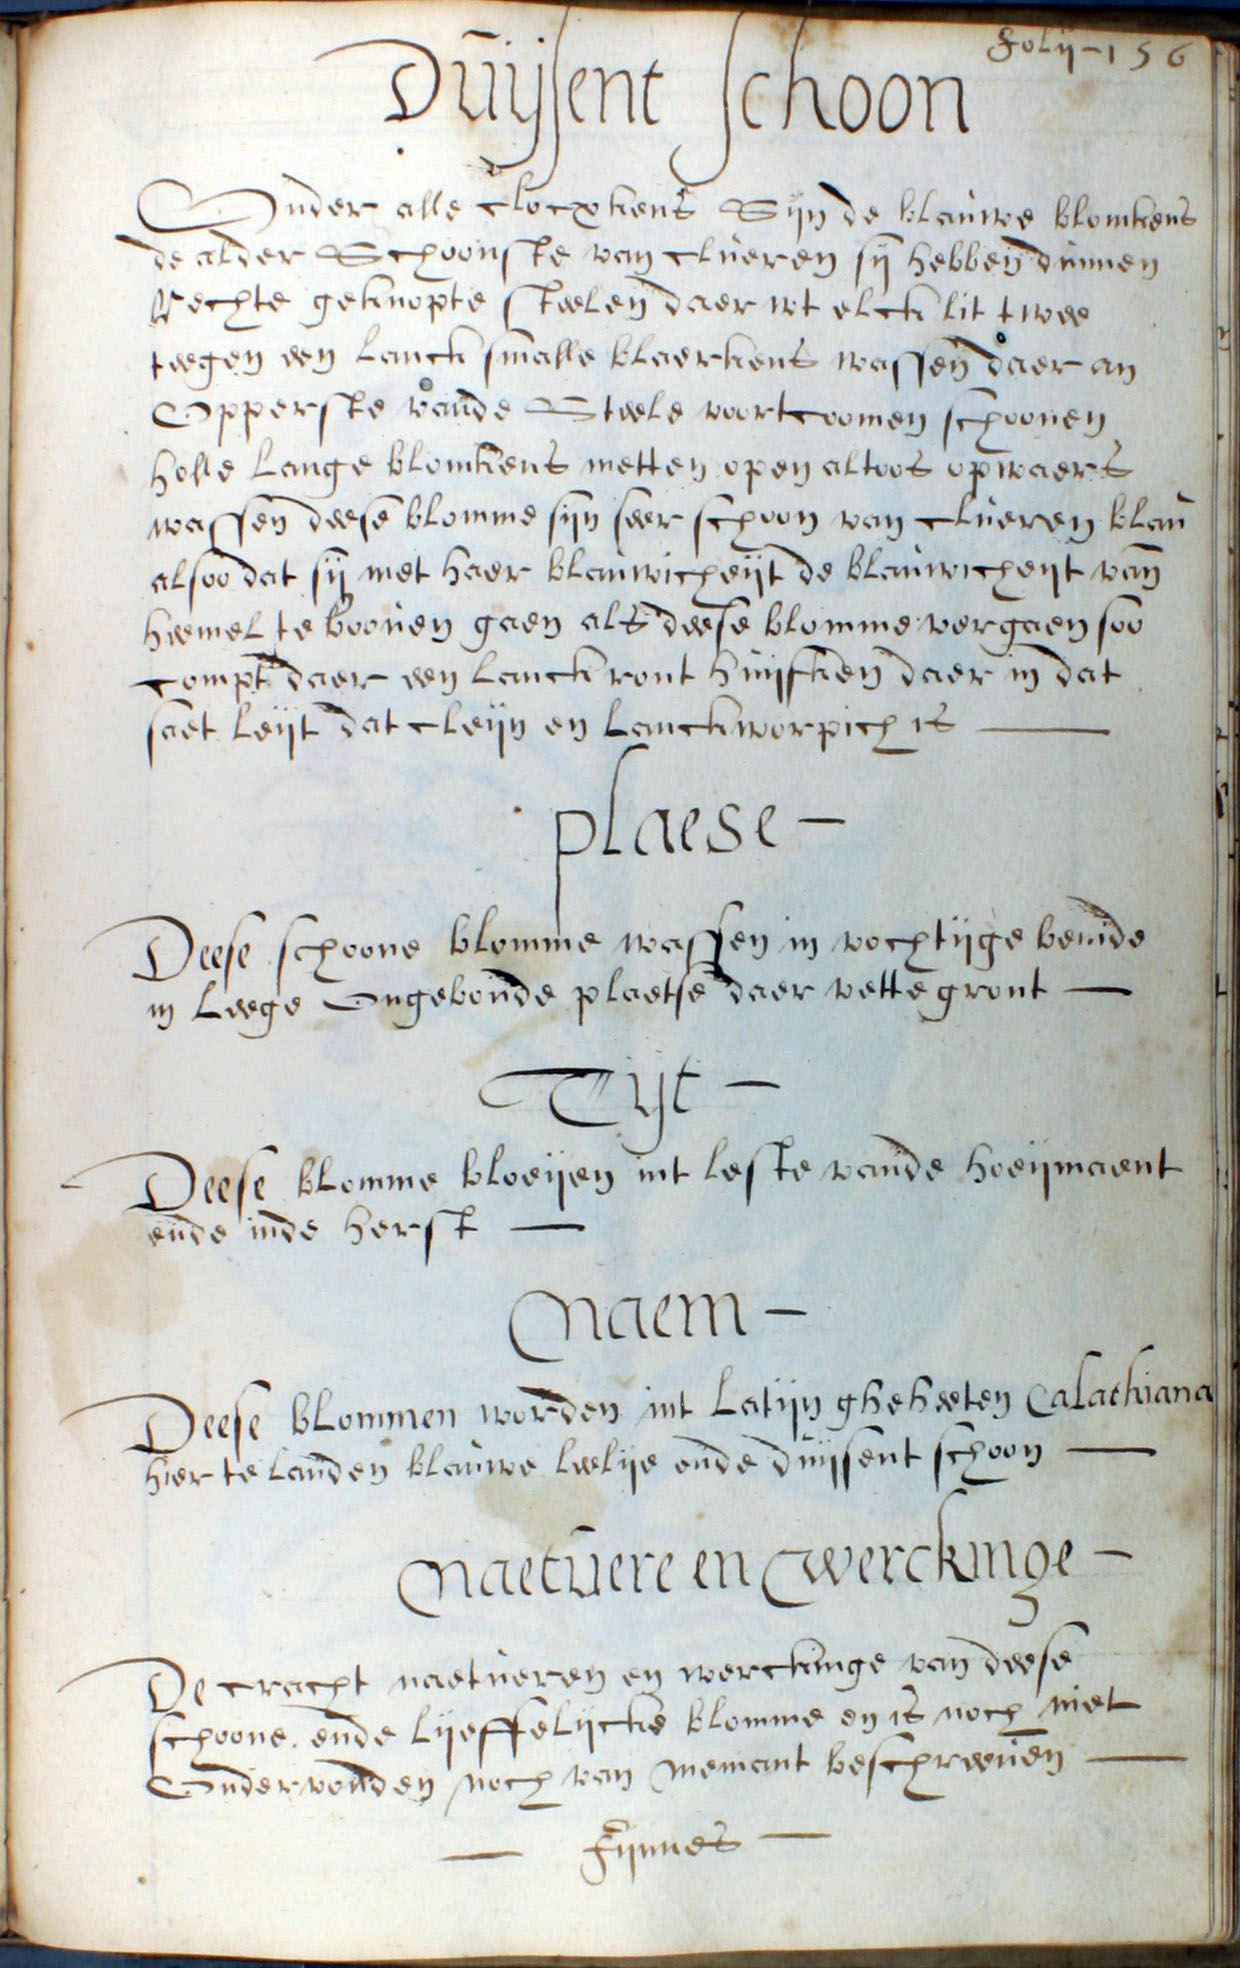 Folij - 156
Duijsent schoon
Onder alle clocxkens Sijn de blauwe blomkens
de alder Schoonste van clueren sij hebben dunnen
Rechte geknopte steelen daer wt elck lit twee
teegen een lanck smalle blaerkens wassen daer an
Opperste vande Steele voortcoomen schoonen
holle lange blomkens metten open altoos opwaers
wassen deese blomme sijn seer schoon van clueren blau
alsoo dat sij met haer blauwicheijt de blauwicheijt van
heemel te booven gaen als deese blomme vergaen soo
compt daer een lanck ront huijsken daer in dat
saet leijt dat cleijn en lanckworpich is —
plaese —
Deese schoone blomme wassen in vochtijge bemde
in leege Ongeboude plaetse daer vette gront —
Tijt —
Deese blomme bloeijen int leste vande hoeijmaent
ende inde herfst —
Naem —
Deese blommen worden int latijn gheheeten Calathiana
hier te landen blauwe leelije ende duijsent schoon —
Naetuere en werckinge —
De cracht naetueren en werckinge van deese
schoone ende lijeffelijcke blomme en is noch niet
Ondervonden noch van niemant beschreeuen —
— Fijnnes —